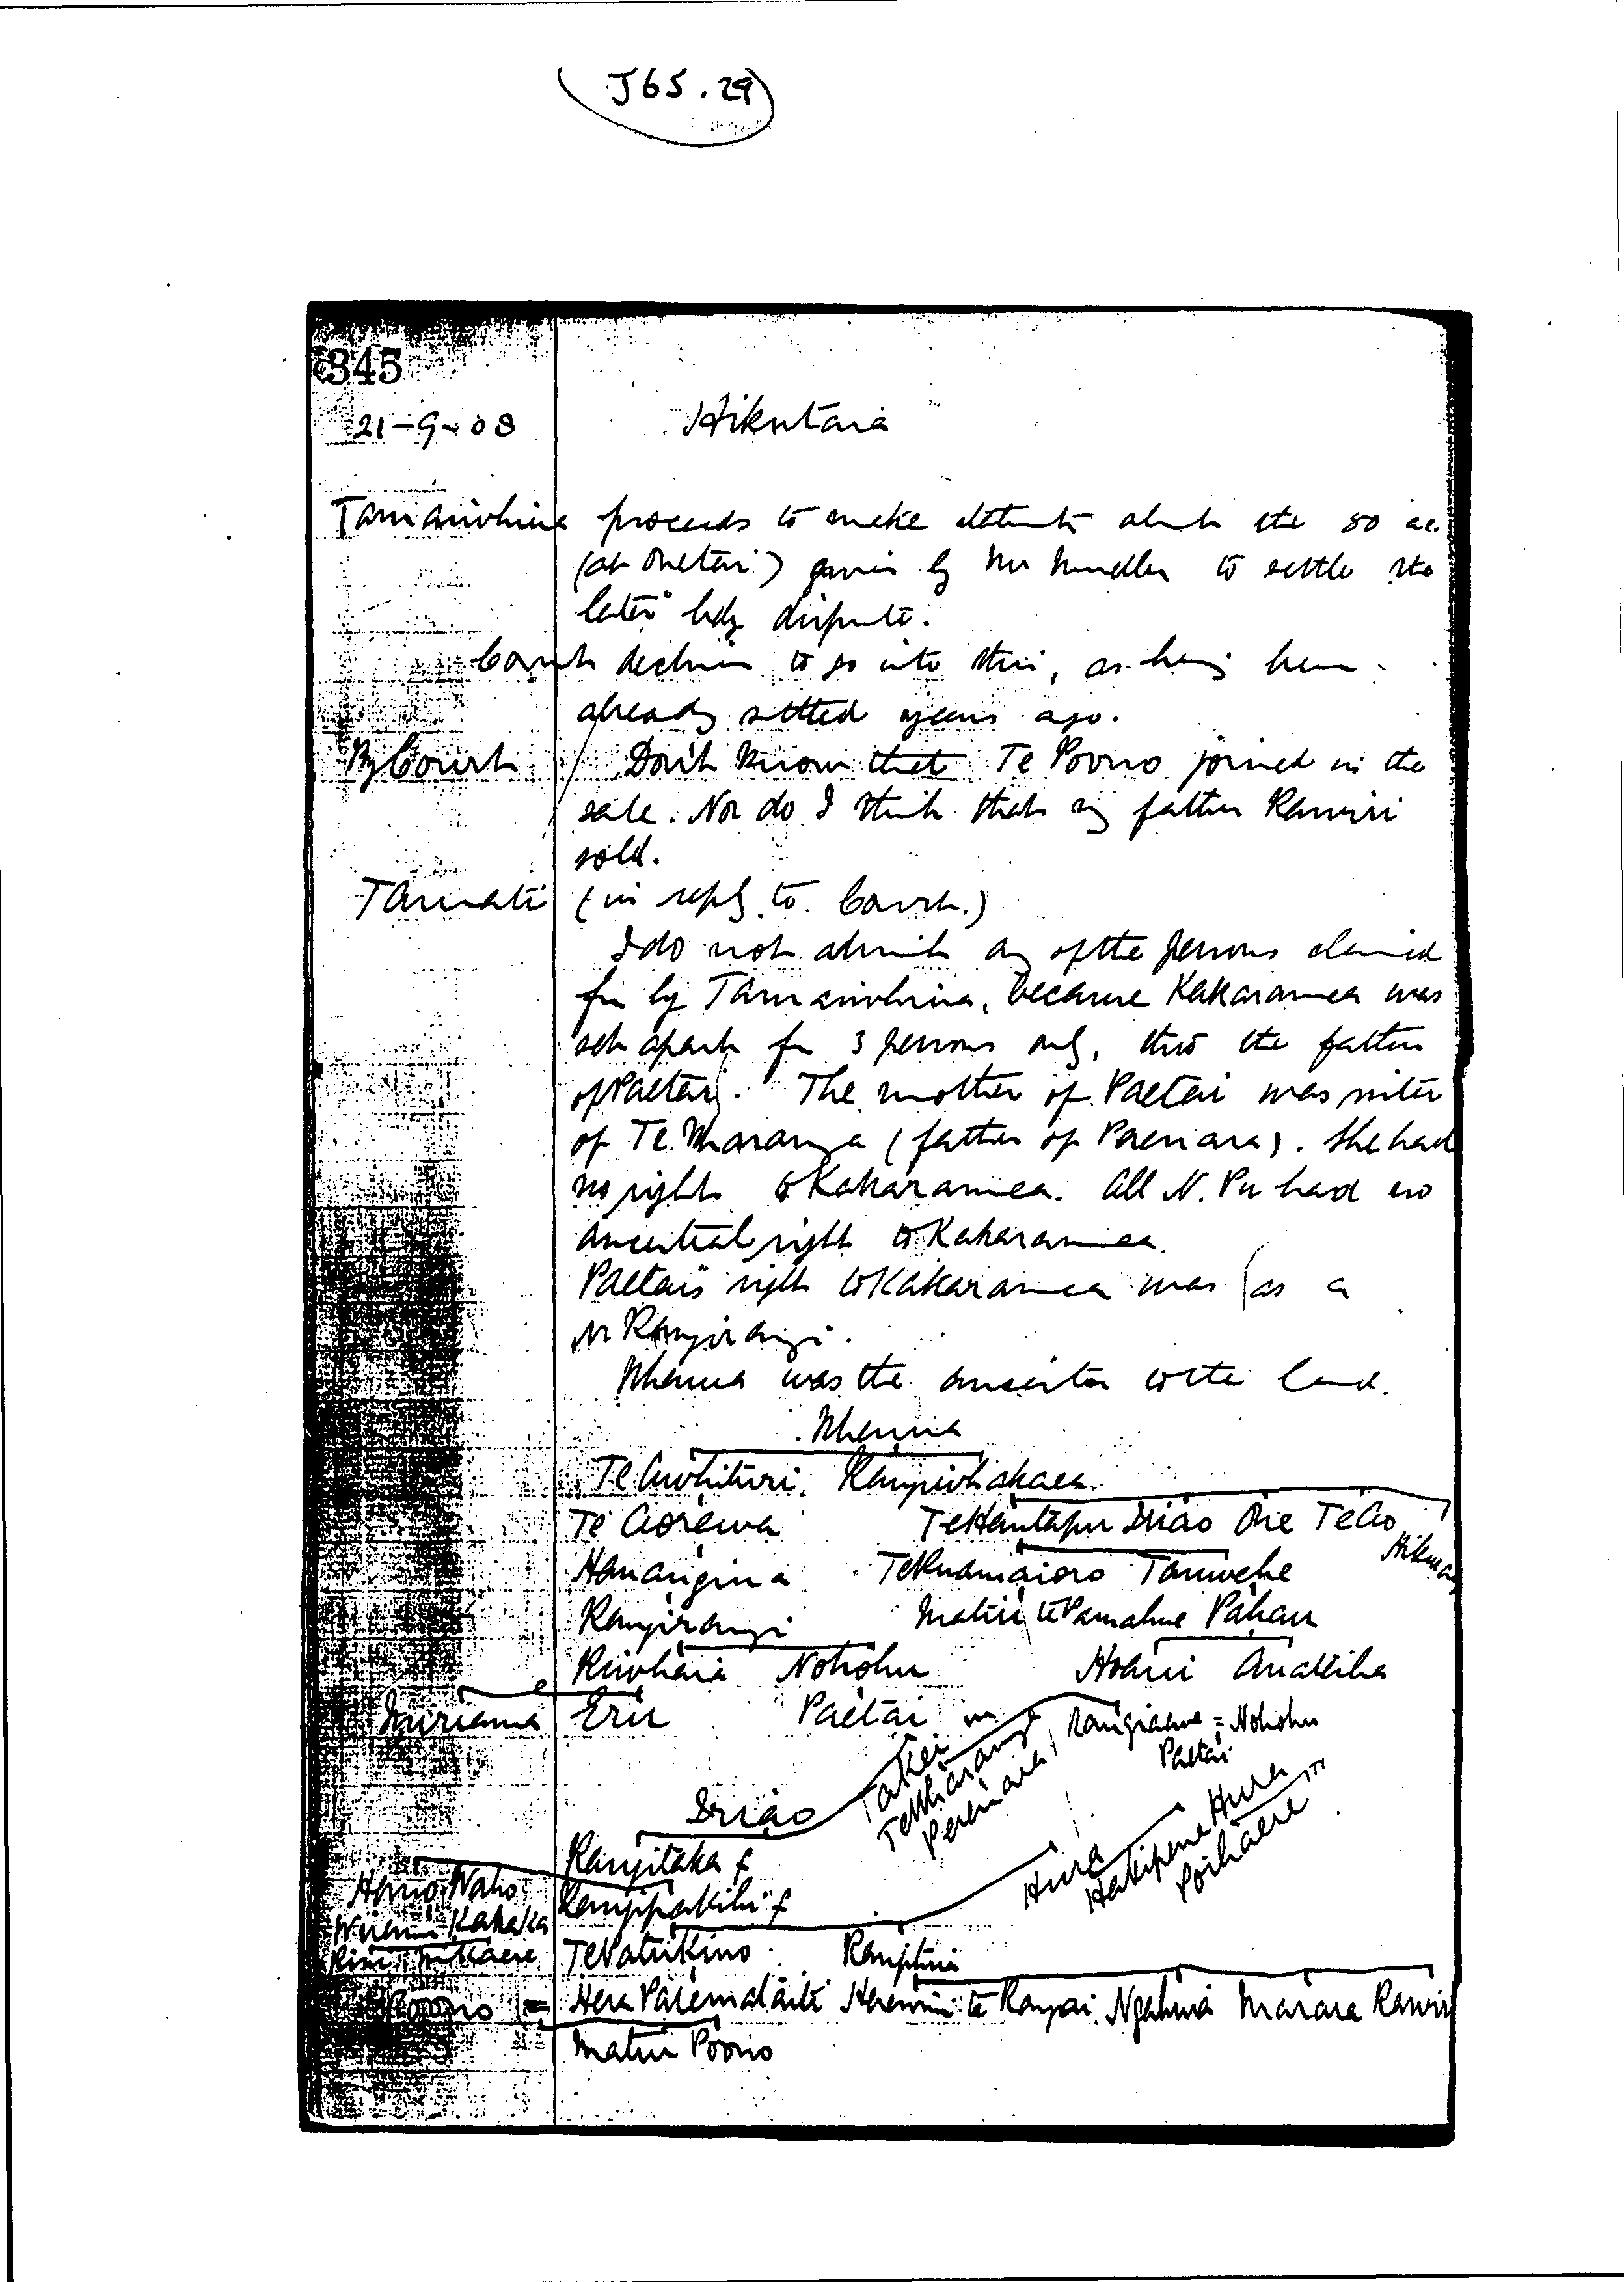 J65.29
345
21-9-08 Hikutaia
Tamaiwhina proceeds to make statmt abt the 80 ac.
(at Onetai) given by Mr Mueller to settle the
later bdy dispute.
Court declines to go into this, as having been
already settled years ago.
By Court Don't know that Te Poono joined in the
sale. Nor do I think that my father Rawiri
sold.
Tamati (in reply to Court.)
I do not admit any of the persons claimed
for by Tamaiwhina, because Kakaramea was
set apart for 3 persons only, thro the father
of Paetai. The mother of Paetai was sister
of Te Maranga (father of Pareniara). She had
no right to Kakaramea. All N. Pu had no
ancestral right to Kakaramea.
Paetai's right to Kakaramea was as a
N Rangirangi.
Whanua was the ancestor to the land.
Whanua
Te Awhituri Rangiwhakaea
Te Aorewa Te Hautapu Iriao Te Ao
Hikuran
Hanangina Te Ruamaioro Taruwehe
Rangirangi Matiu te Pamahue Pahau
Riwhaia Nohohu Hohui
Miriama Eru Paetai m f Rangiahua = Nohohu
Paetai
Takei
Te Maranga
Pereniara
Iriao
Rangitaka f
Rangipakihi f
Hura
Hakipene Hura
Poihaere
Hamo Naho
Wiremu Kahaka
Rini Mikaere Te Patukino Rangituia
Poono = Hera Paremataiti Herewini te Rangai Ngahuia Marara Rawiri
Matiu Poono